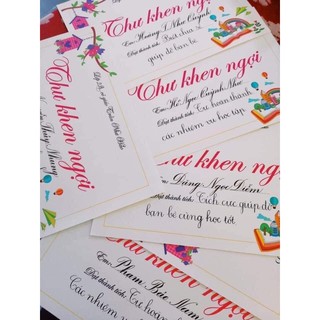 Thư khen ngợi
Em: Hoàng T. Như Quỳnh
Đạt thành tích: Biết chia sẻ,
giúp đỡ bạn bè.
Thư khen ngợi
Em: Hồ Ngọc Quỳnh Như
Đạt thành tích: Tự hoàn thành
các nhiệm vụ học tập.
Thư khen ngợi
Em: Đặng Ngọc Diễm
Đạt thành tích: Tích cực giúp đỡ
bạn bè cùng học tốt.
Thư khen ngợi
Em: Phạm Bảo Nam
Đạt thành tích: Tự hoàn thành
Các nhiệm vụ học
Thư khen ngợi